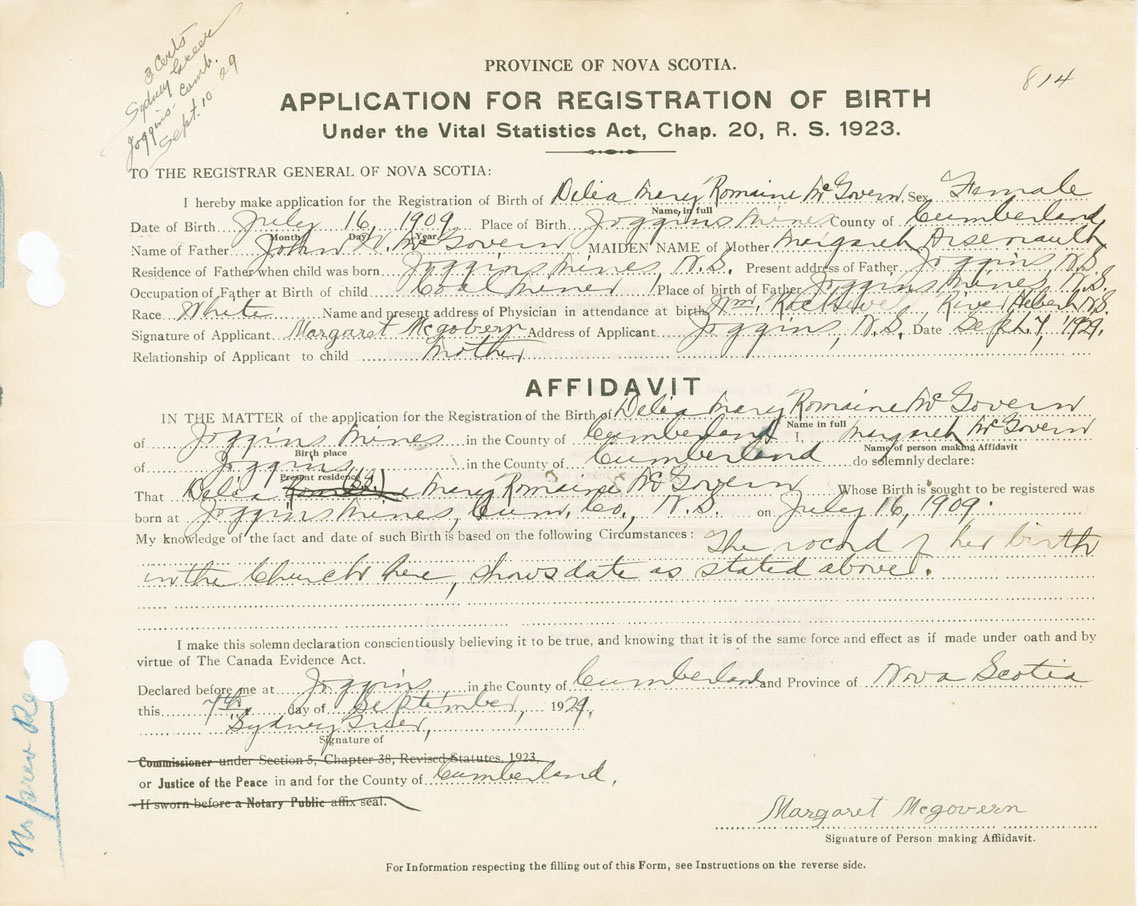 3 Certs
Sydney Greer
Joggins. Cumb.
Sept. 10 29
PROVINCE OF NOVA SCOTIA.
814
APPLICATION FOR REGISTRATION OF BIRTH
Under the Vital Statistics Act, Chap. 20, R. S. 1923.
TO THE REGISTRAR GENERAL OF NOVA SCOTIA:
I hereby make application for the Registration of Birth of Delia Mary Romaine McGovern Sex Female
Name, in full
Date of Birth July 16, 1909 Place of Birth Joggins Mines County of Cumberland
Month Day Year
Name of Father John McGovern MAIDEN NAME of Mother Margaret Arsenault
Residence of Father when child was born Joggins Mines, N.S. Present address of Father Joggins N.S.
Occupation of Father at Birth of child Coal Miner Place of birth of Father Joggins Mines N.S.
Race White Name and present address of Physician in attendance at birth Wm. Rockwell, River Hebert N.S.
Signature of Applicant Margaret Mcgovern Address of Applicant Joggins, N.S. Date Sept. 7, 1929.
Relationship of Applicant to child Mother
AFFIDAVIT
IN THE MATTER of the application for the Registration of the Birth of Delia Mary Romaine McGovern
Name in full
of Joggins Mines in the County of Cumberland I, Margaret McGovern
Birth place Name of person making Affidavit
of Joggins in the County of Cumberland do solemnly declare:
Present residence
That Delia Mary Romaine McGovern Whose Birth is sought to be registered was
born at Joggins Mines, Cum. Co., N.S. on July 16, 1909.
My knowledge of the fact and date of such Birth is based on the following Circumstances: The record of her birth
in the Church here, shows date as stated above.
I make this solemn declaration conscientiously believing it to be true, and knowing that it is of the same force and effect as if made under oath and by
virtue of The Canada Evidence Act.
Declared before me at Joggins in the County of Cumberland and Province of Nova Scotia
this 7th. day of September, 1929.
Sydney Greer,
Signature of
Commissioner under Section 5, Chapter 38, Revised Statutes, 1923.
or Justice of the Peace in and for the County of Cumberland,
If sworn before a Notary Public affix seal.
Margaret Mcgovern
Signature of Person making Affiidavit.
For Information respecting the filling out of this Form, see Instructions on the reverse side.